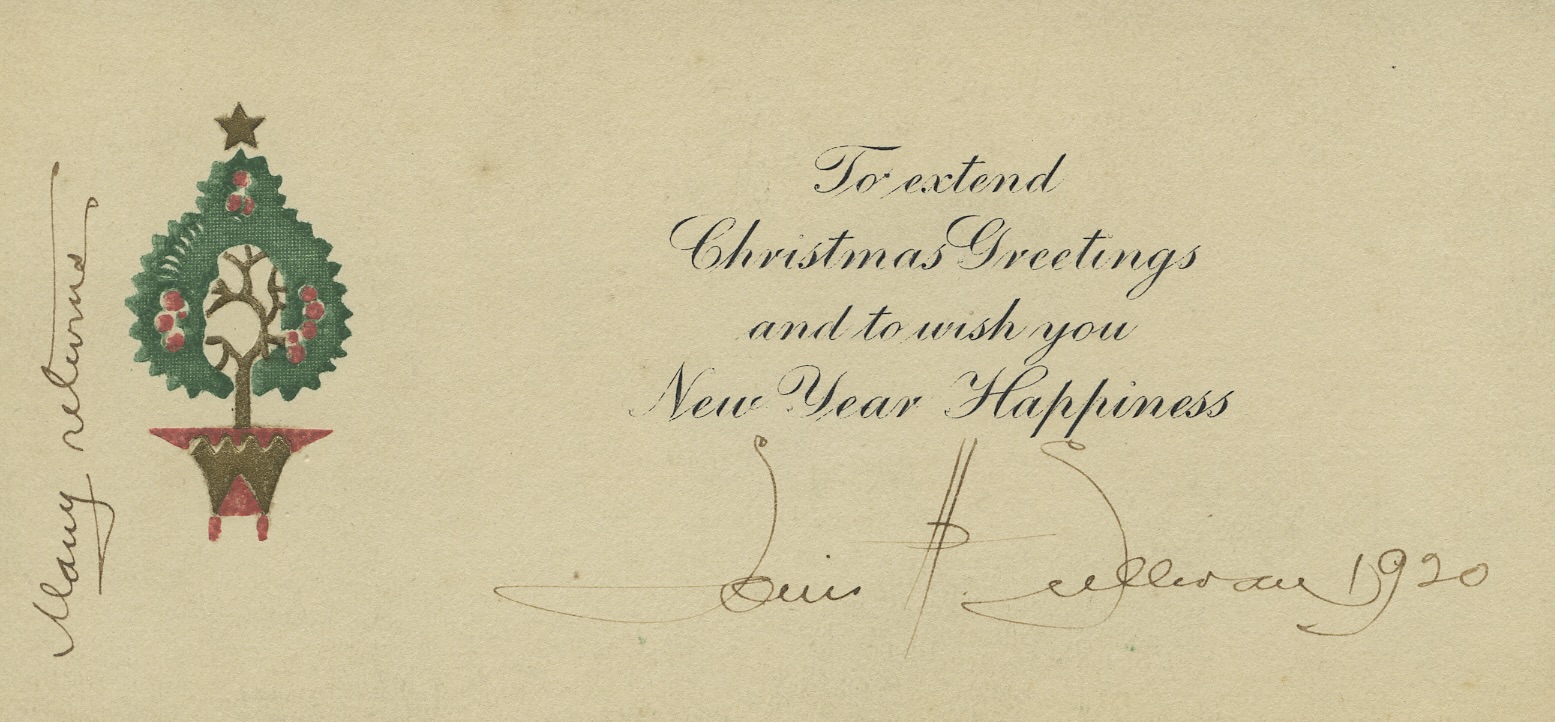 To extend
Christmas Greetings
and to wish you
New Year Happiness
Louis H. Sullivan 1920
Many returns